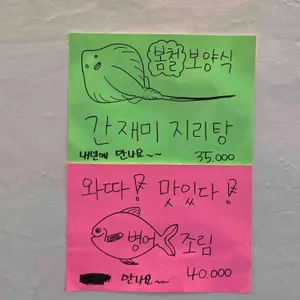 봄철 보양식
간재미 지리탕
내년에 만나요~~ 35.000
와따! 맛있다!
병어 조림
만나요~~ 40.000